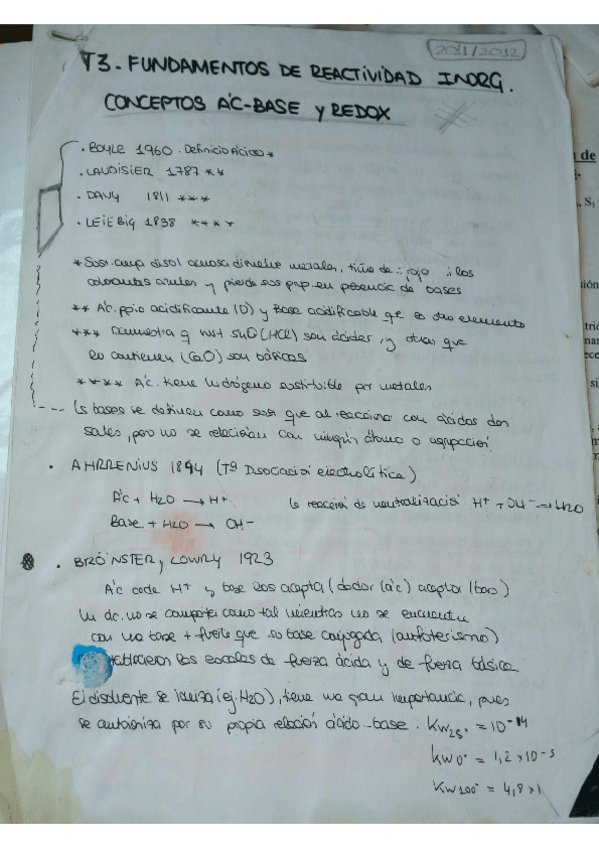 20/1/2012
T3. FUNDAMENTOS DE REACTIVIDAD INORG.
CONCEPTOS A'C-BASE y REDOX
. BOYLE 1960. Definició Ácido *
. LAUDISIER 1787 * *
. DAVY 1811 * * *
. LEiEBiG 1838 * * * *
* Sust. cuya disol acuosa disuelve metales, tiñe de rojo a los
colorantes azules y pierde sus prop. en presencia de bases
** A'c. ppio acidificante (O) y Base acidificable que es otro elemento
*** Demuestra q sust sin O (HCl) son ácidas, y otras que
lo contienen (CaO) son básicas
**** A'c. tiene hidrógeno sustituible por metales
Ls bases se definen como sust que al reaccionar con ácidos dan
sales, pero no se relacionan con ningún átomo o agrupación
. AHRRENIUS 1894 (Tª Disociació electrolítica)
A'c + H2O → H+
la reacción de neutralización: H+ + OH- → H2O
Base + H2O → OH-
. BRÖNSTER y LOWRY 1923
A'c cede H+ y base los acepta (dador (a'c) aceptor (bas)
Un ác. no se comporta como tal mientras no se encuentre
con una base + fuerte que su base conjugada (anfoterismo)
las escalas de fuerza ácida y de fuerza básica
El disolvente se ioniza (ej. H2O), tiene una gran importancia, pues
se autoioniza por su propia relación ácido-base. Kw25° = 10-14
Kw0° = 1,2 x 10-5
Kw100° = 4,8 x 1
de
, S,
ión
tric
nar
ece
si